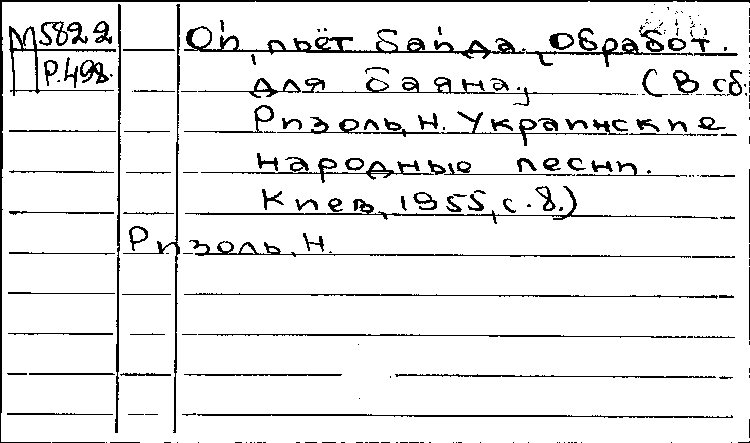 М 5822
Р.498.
Ой, пьёт Байда. [Обработ.
для баяна.] (В сб.
Ризоль, Н. Украинские
народные песни.
Киев, 1955, с. 8.)
Ризоль, Н.